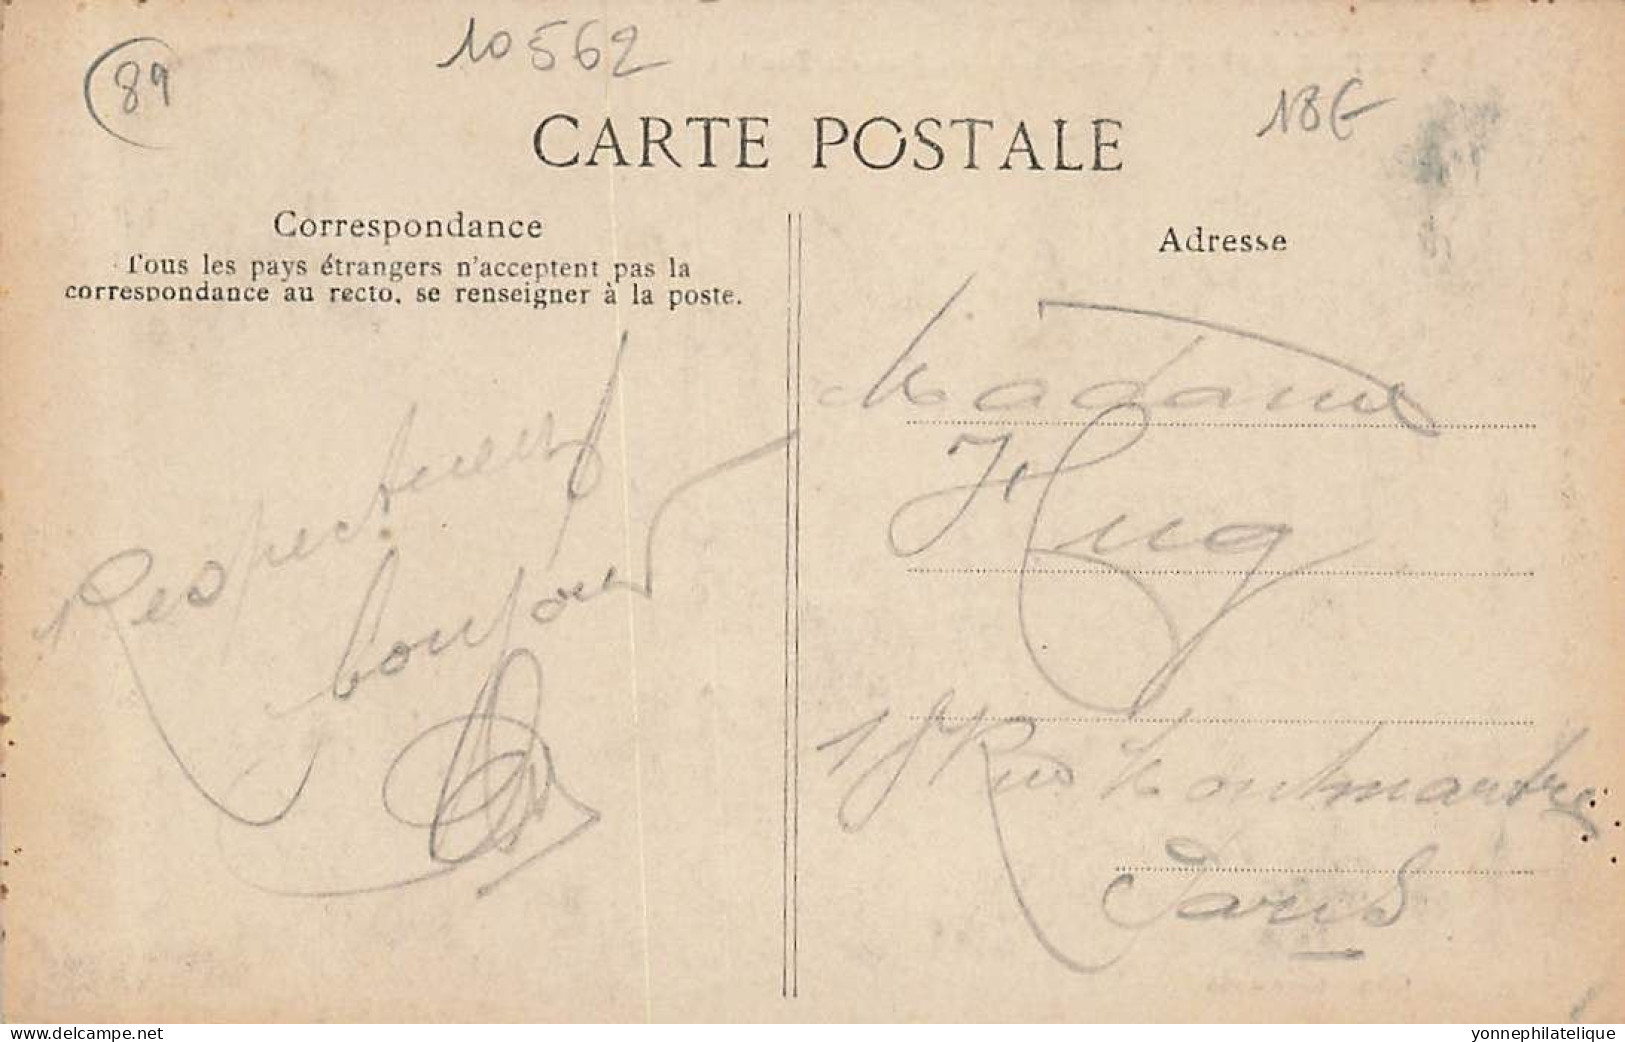 89
10562
18€
CARTE POSTALE
Correspondance
Tous les pays étrangers n'acceptent pas la
correspondance au recto, se renseigner à la poste.
Respectueux
bonjour
Adresse
Madame
Hug
Rue Montmartre
Paris
delcampe.net
yonnephilatelique